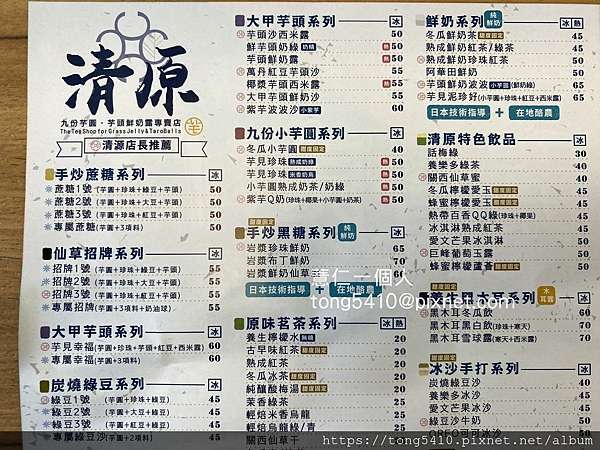 清原
九份芋圓·芋頭鮮奶露專賣店
The Tea Shop for Grass Jelly & Taro Balls
清源店長推薦
手炒蔗糖系列 冰
蔗糖1號 (芋圓+珍珠+綠豆+芋頭) 50
蔗糖2號 (芋圓+珍珠+大豆+芋頭) 50
蔗糖3號 (芋圓+珍珠+紅豆+芋頭) 50
專屬蔗糖 (芋圓+3項料) 50
仙草招牌系列 冰
招牌1號 (芋圓+珍珠+綠豆+芋頭) 55
招牌2號 (芋圓+珍珠+大豆+芋頭) 55
招牌3號 (芋圓+珍珠+紅豆+芋頭) 55
專屬招牌 (芋圓+3項料+奶油球) 55
大甲芋頭系列 冰
芋見幸福 (芋圓+珍珠+芋頭+紅豆+西米露) 60
專屬幸福 (芋圓+3項料) 60
炭燒綠豆系列 冰
綠豆1號 (芋圓+珍珠+綠豆) 45
綠豆2號 (芋圓+大豆+綠豆) 45
綠豆3號 (芋圓+紅豆+綠豆) 45
專屬綠豆沙 (芋圓+2項料) 45
大甲芋頭系列 冰
芋頭沙西米露 50
鮮芋頭奶綠 奶精 熱 50
芋頭鮮奶露 熱 50
萬丹紅豆芋頭沙 55
椰漿芋頭西米露 熱 55
大甲芋頭鮮奶沙 55
紫芋波波沙 小紫芋 60
九份小芋圓系列 冰
冬瓜小芋圓 甜度固定 40
芋見珍珠 熟成奶綠 50
芋見珍珠 米香奶烏 50
小芋圓熟成奶茶/奶綠 50
紫芋Q奶 (珍珠+椰果+小芋圓+奶茶) 50
甜度固定
手炒黑糖系列 純鮮奶 冰
岩漿珍珠鮮奶 65
岩漿布丁鮮奶 70
岩漿鮮奶仙草 60
日本技術指導 + 在地酪農
原味茗茶系列 冰 熱
養生檸檬水 無糖 20
古早味紅茶 甜度固定 20
熟成紅茶 20
冬瓜冰茶 甜度固定 20
純釀酸梅湯 甜度固定 20
茉香綠茶 20
輕焙米香烏龍
輕焙烏龍綠/青
關西仙草干
鮮奶系列 純鮮奶 冰 熱
冬瓜鮮奶茶 甜度固定 45
熟成鮮奶紅茶/綠茶 45
熟成鮮奶珍珠紅茶 50
阿華田鮮奶 50
芋頭鮮奶波波 小芋圓 (鮮奶綠) 65
芋見泥珍好 (小芋圓+珍珠+紅豆+西米露) 65
日本技術指導 + 在地酪農
清原特色飲品 冰
話梅綠 30
養樂多綠茶 40
關西仙草蜜 40
冬瓜檸檬愛玉 甜度固定 45
蜂蜜檸檬愛玉 甜度固定 50
熱帶百香QQ綠 (珍珠+椰果) 50
冰淇淋熟成紅茶 45
愛文芒果冰淇淋 50
巨峰葡萄蘆薈 50
蜂蜜檸檬蘆薈 甜度固定 50
木耳露 冰
黑木耳冬瓜飲 60
黑木耳黑白飲 (珍珠+寒天)
黑木耳雪球露 (寒天+西米露)
甜度固定
冰沙手打系列 冰
炭燒綠豆沙 40
養樂多冰沙
愛文芒果冰沙
綠豆沙牛奶 50
OREO可可冰沙 50
華仁一個人
tong5410@pixnet.com
https://tong5410.pixnet.net/album